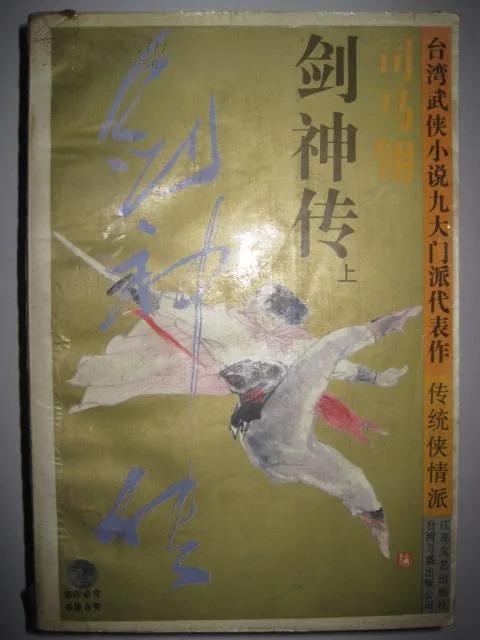 台湾武侠小说九大门派代表作
传统侠情派
江苏文艺出版社
台湾万盛出版公司
司马翎
剑神传
上
剑神传